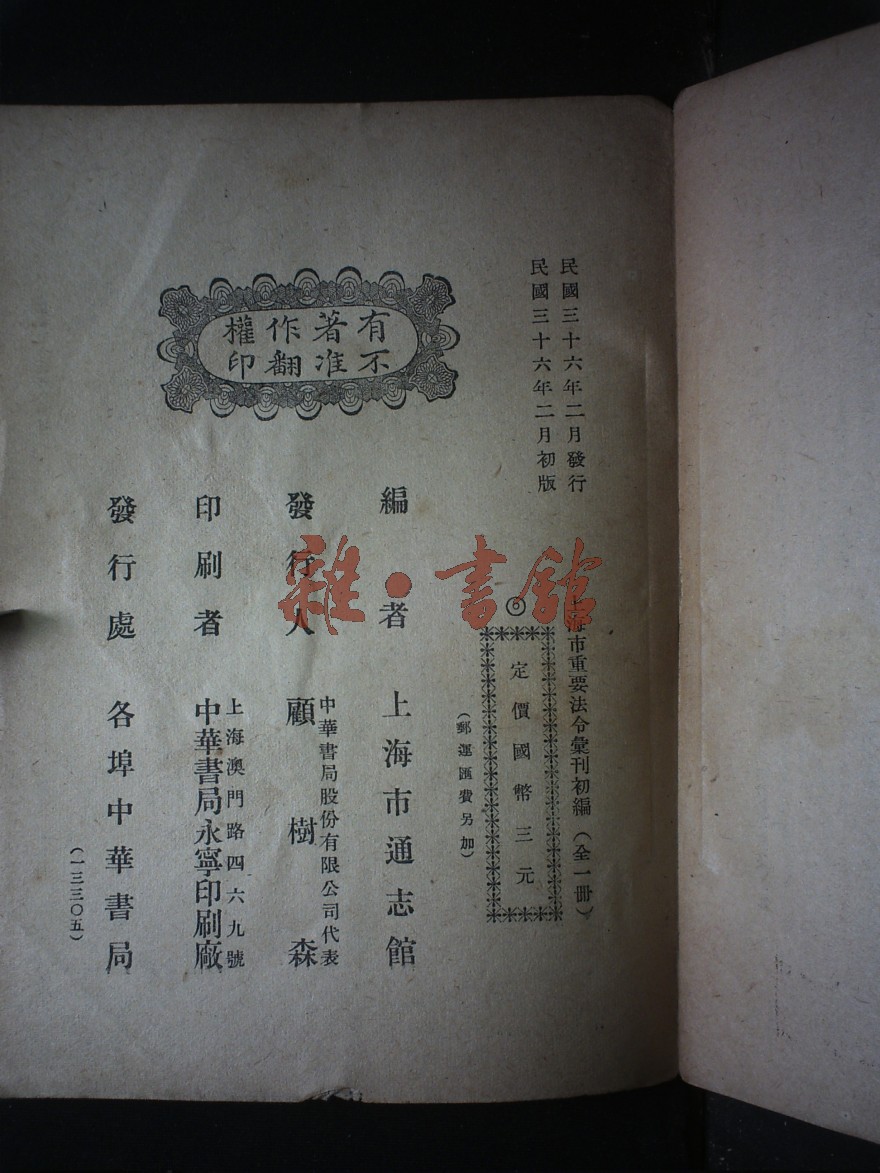 民國三十六年二月發行
民國三十六年二月初版
上海市重要法令彙刊初編(全一冊)
定價國幣三元
(郵運匯費另加)
有著作權
不准翻印
編者 上海市通志館
發行人 中華書局股份有限公司代表
顧樹森
印刷者 上海澳門路四六九號
中華書局永寧印刷廠
發行處 各埠中華書局
(一三三〇五)
雜·書館